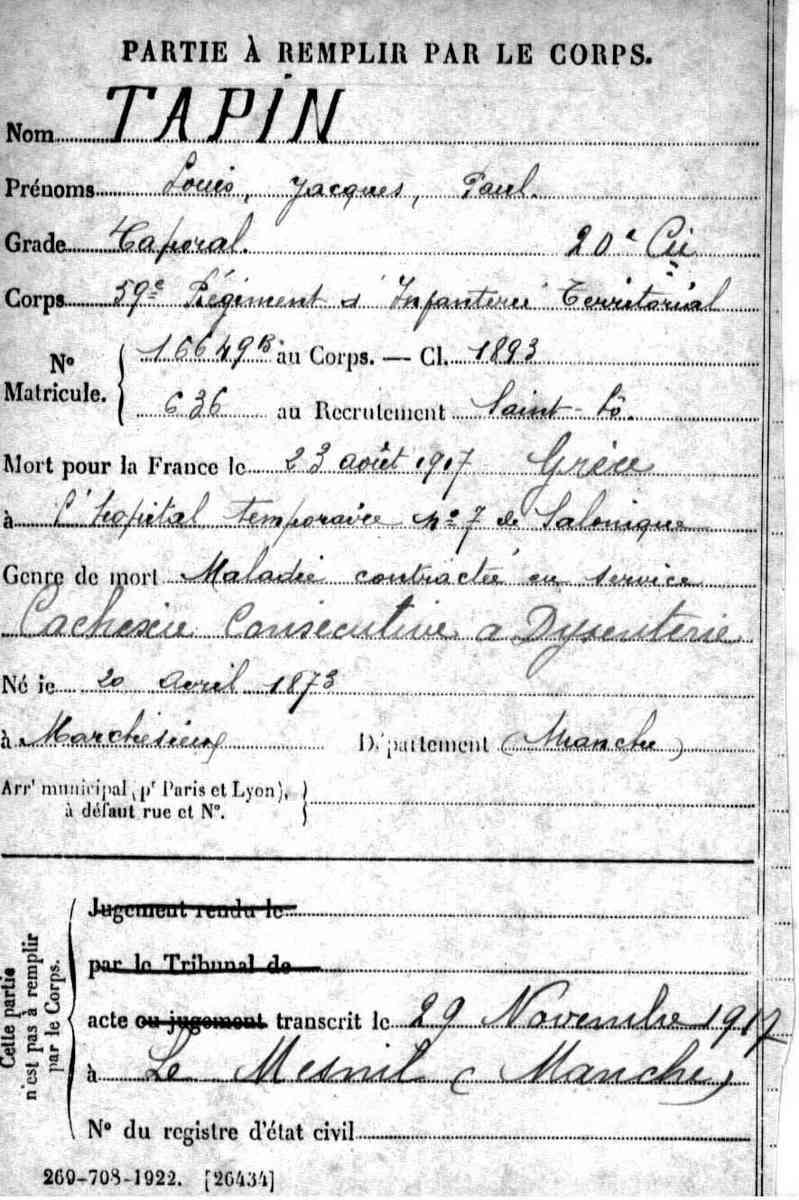 PARTIE À REMPLIR PAR LE CORPS.
Nom TAPIN
Prénoms Louis, Jacques, Paul.
Grade Caporal. 20e Cie
Corps 59e Régiment d'Infanterie Territorial
No Matricule. 16649B au Corps. — Cl. 1893
636 au Recrutement Saint-Lô.
Mort pour la France le 23 août 1917 Grèce
à l'hopital temporaire no 7 de Salonique
Genre de mort Maladie contractée en service
Cachexie Consécutive a Dysenterie
Né le 20 avril 1873
à Marchésieux Département (Manche)
Arrt municipal (pr Paris et Lyon),
à défaut rue et No.
Cette partie n'est pas à remplir par le Corps.
Jugement rendu le
par le Tribunal de
acte ou jugement transcrit le 29 Novembre 1917
à Le Mesnil (Manche)
No du registre d'état civil
269-708-1922. [26434]